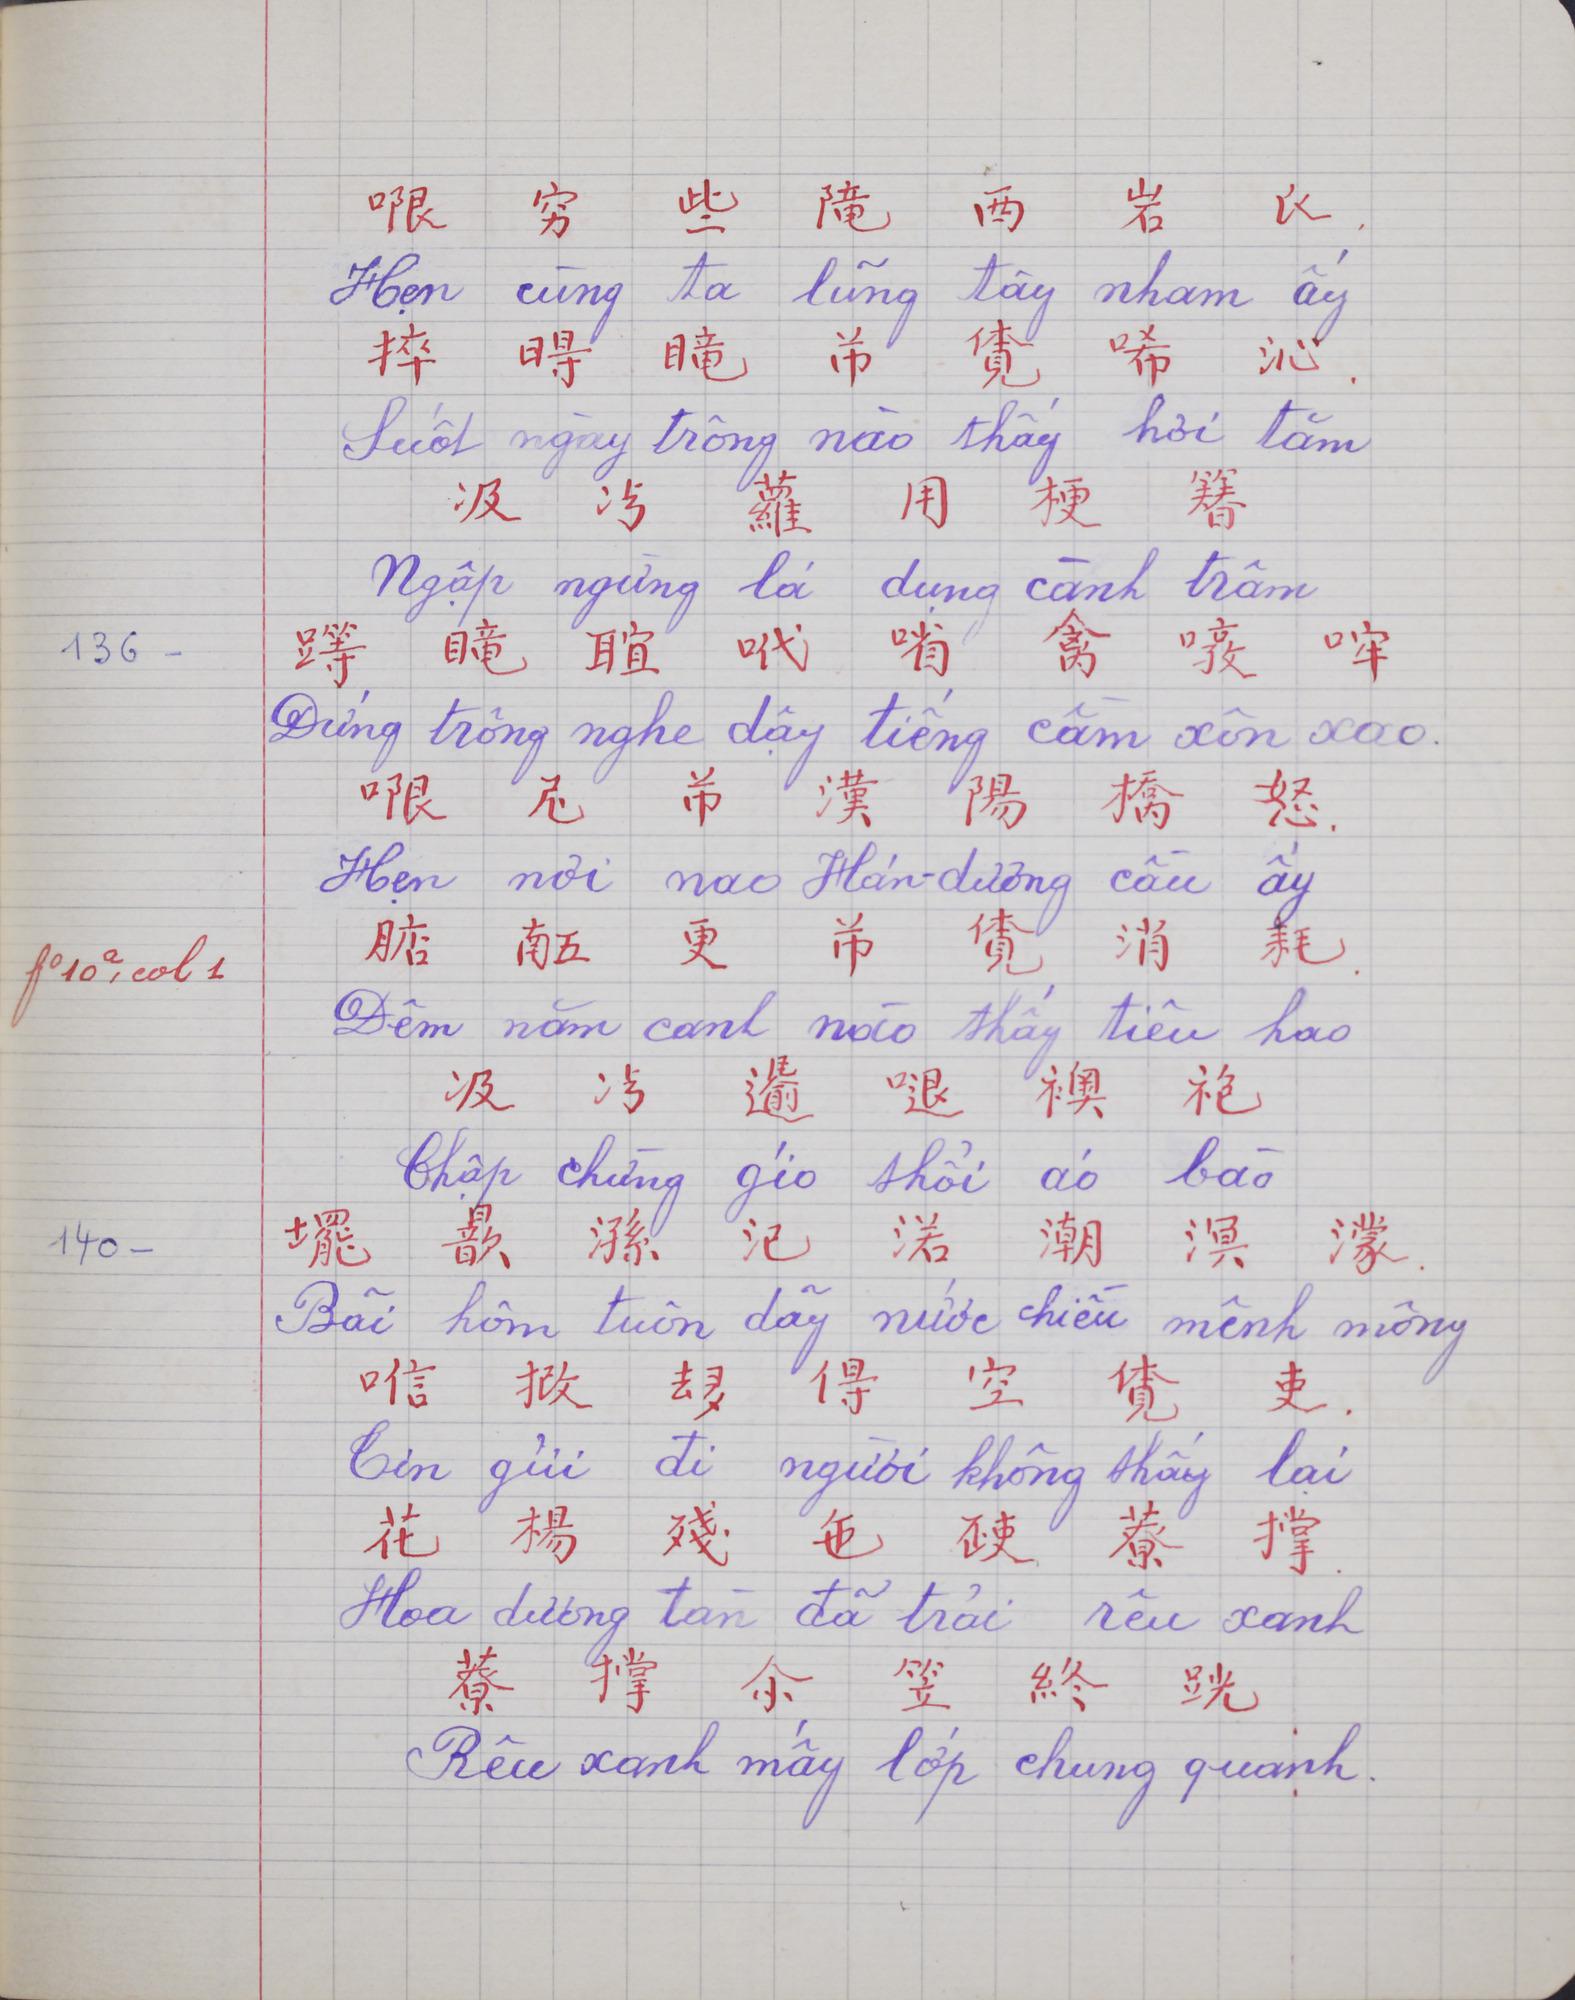 哏 穷 些 𨻫 西 岩 𧘇.
Hẹn cùng ta lũng tây nham ấy
捽 𣈜 䀎 芇 𧡊 唏 沁.
Suốt ngày trông nào thấy hơi tăm
汲 汿 蘿 用 梗 簪
Ngập ngừng lá dụng cành trâm
136 -
䀎 咹 禽
Đứng trông nghe dậy tiếng cầm xôn xao.
哏 尼 芇 漢 陽 橋 怒.
Hẹn nơi nao Hán-dương cầu ấy
fº10ª, col 1
𣎀 𠄼 更 芇 𧡊 消 耗.
Đêm năm canh nào thấy tiêu hao
汲 汿 𨗺 𠾔 襖 袍
Chập chừng gío thổi aó bào
140 -
𡓁 歆 漛 汜 渃 潮 溟 濛.
Bãi hôm tuôn dẫy nước chiều mênh mông
𠵌 𢭮 𠫾 得 空 𧡊 吏.
Tin gửi đi người không thấy lại
花 楊 殘 㐌 𣦰 蕘 撑.
Hoa dương tàn đã trải rêu xanh
蕘 撑 氽 笠 終 𨀤
Rêu xanh mấy lớp chung quanh.